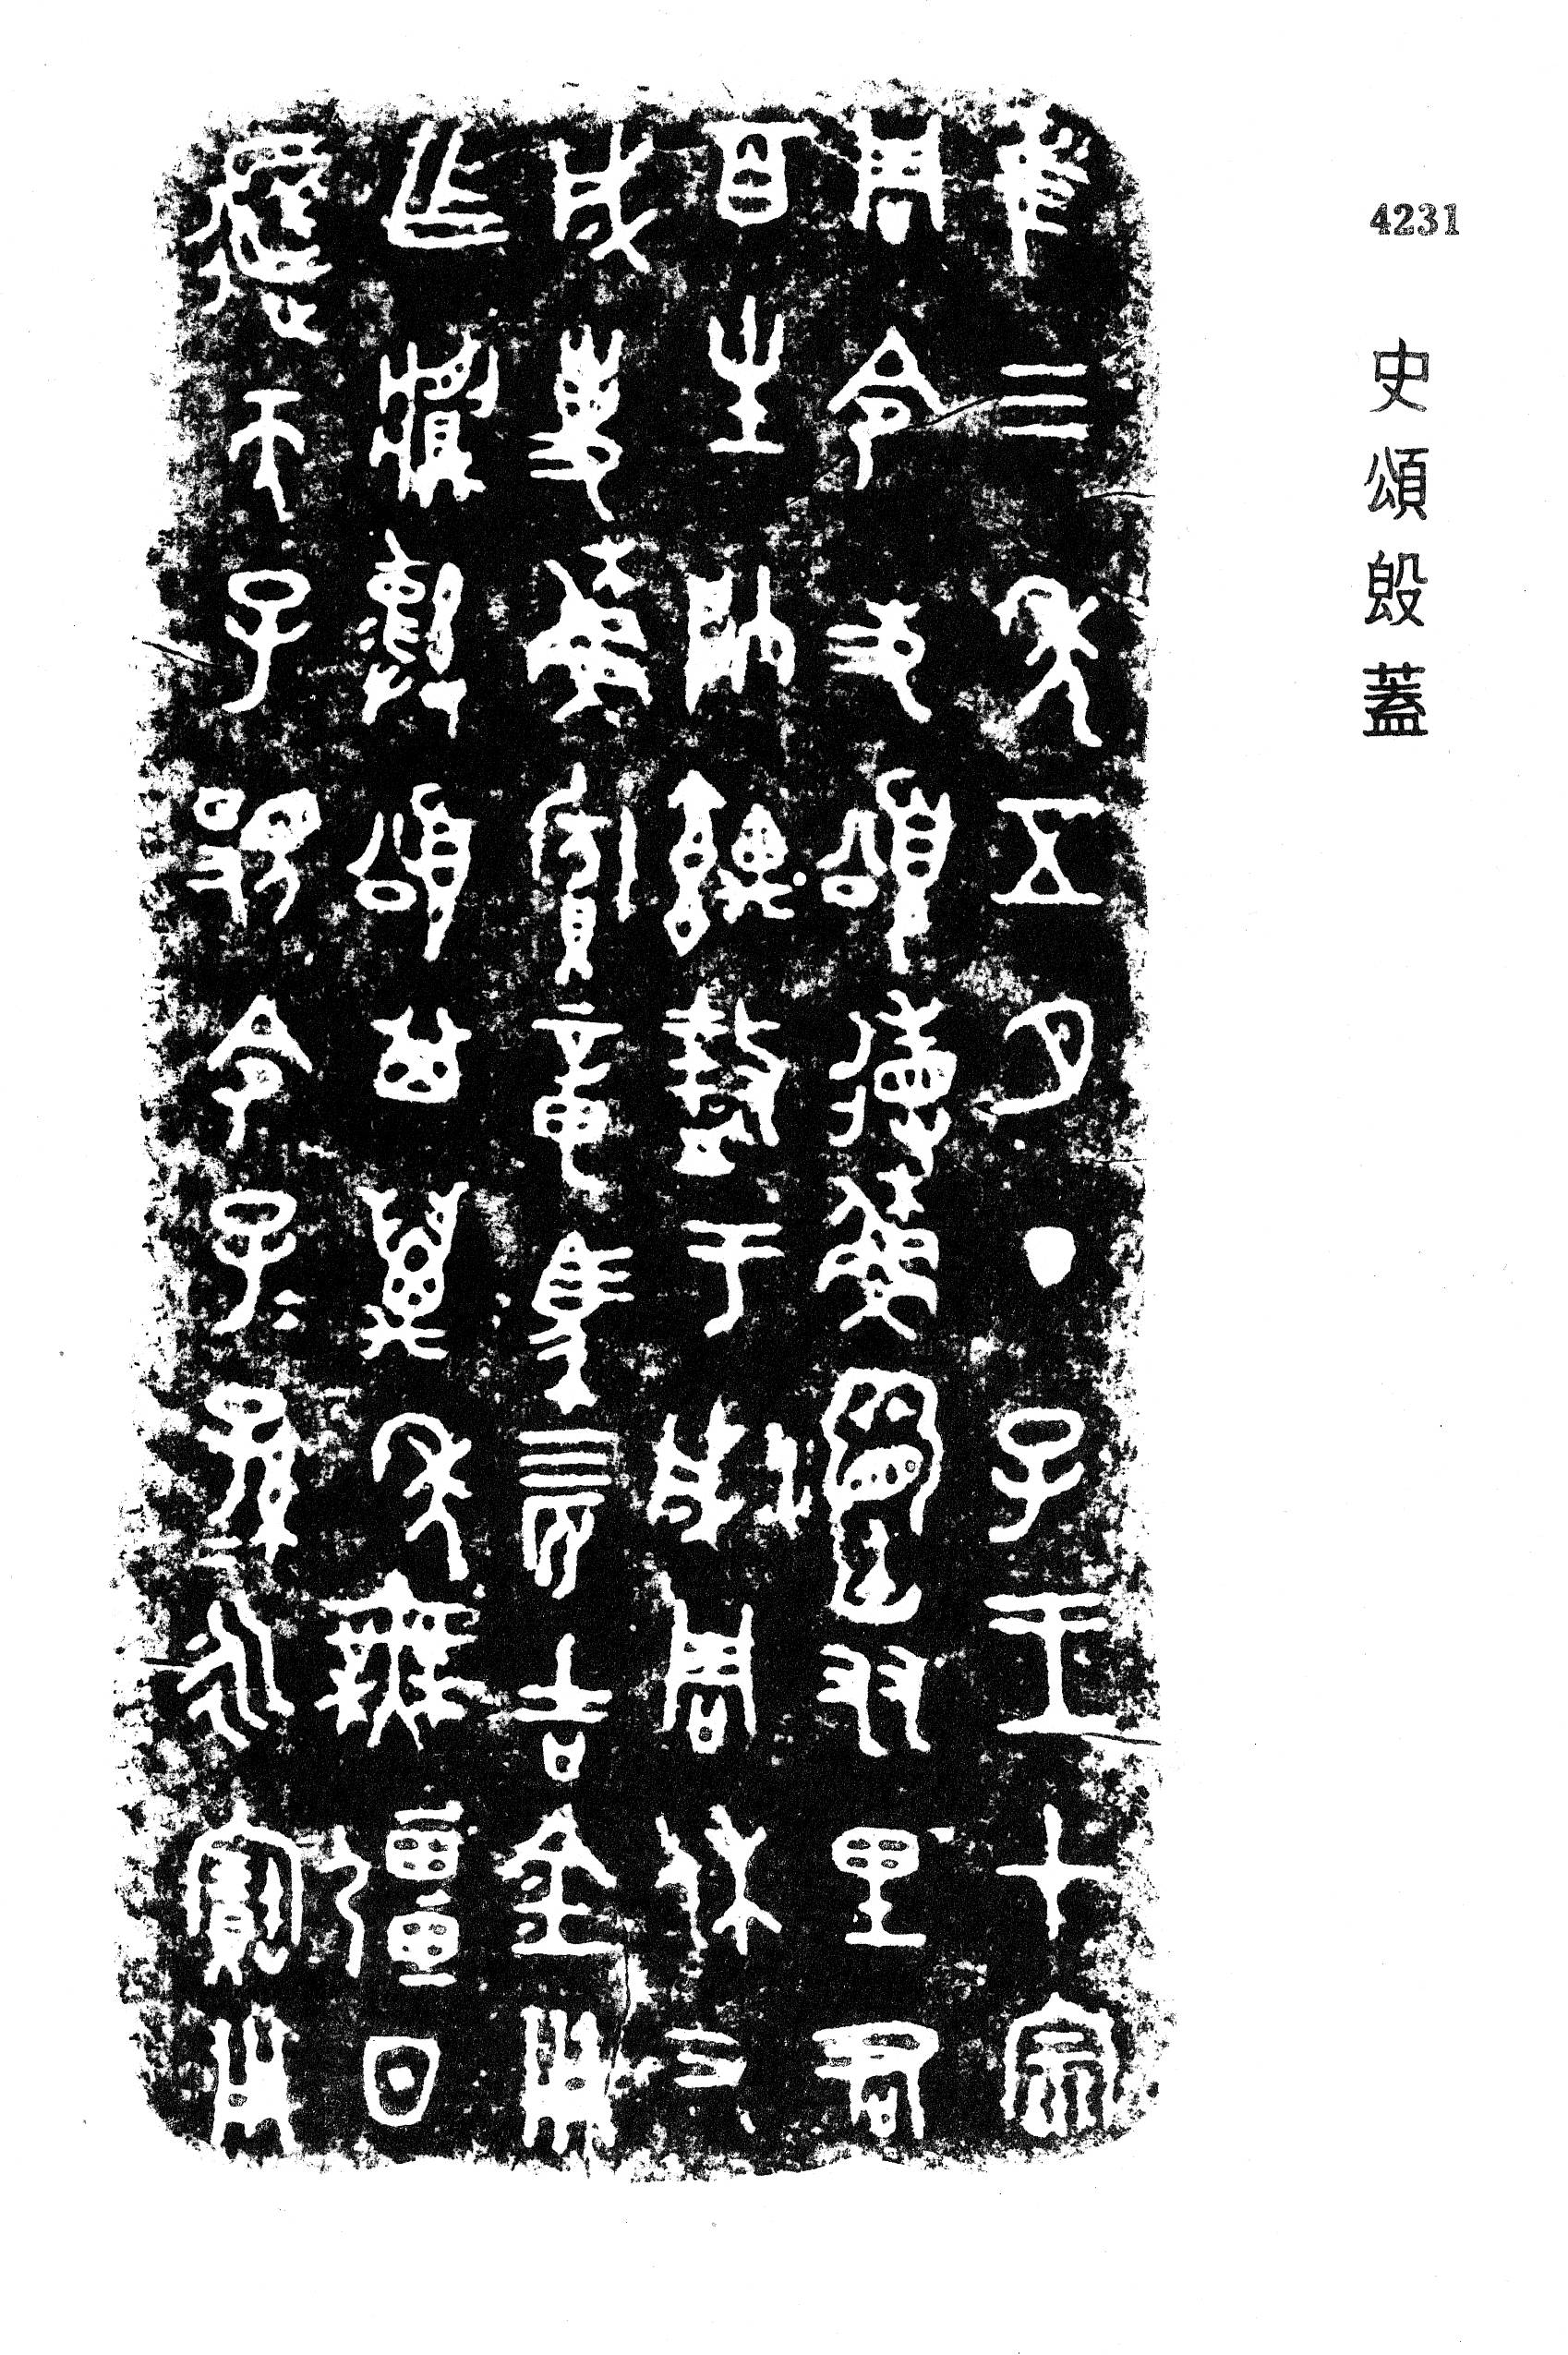 4231
史頌𣪘蓋
隹三年五月丁子王才宗
周令史頌省蘇友里君
百生帥盩于成周休又
成事蘇賓章馬四匹吉金用
乍䵼彝頌其萬年無疆日
天子令子=孫=永寶用